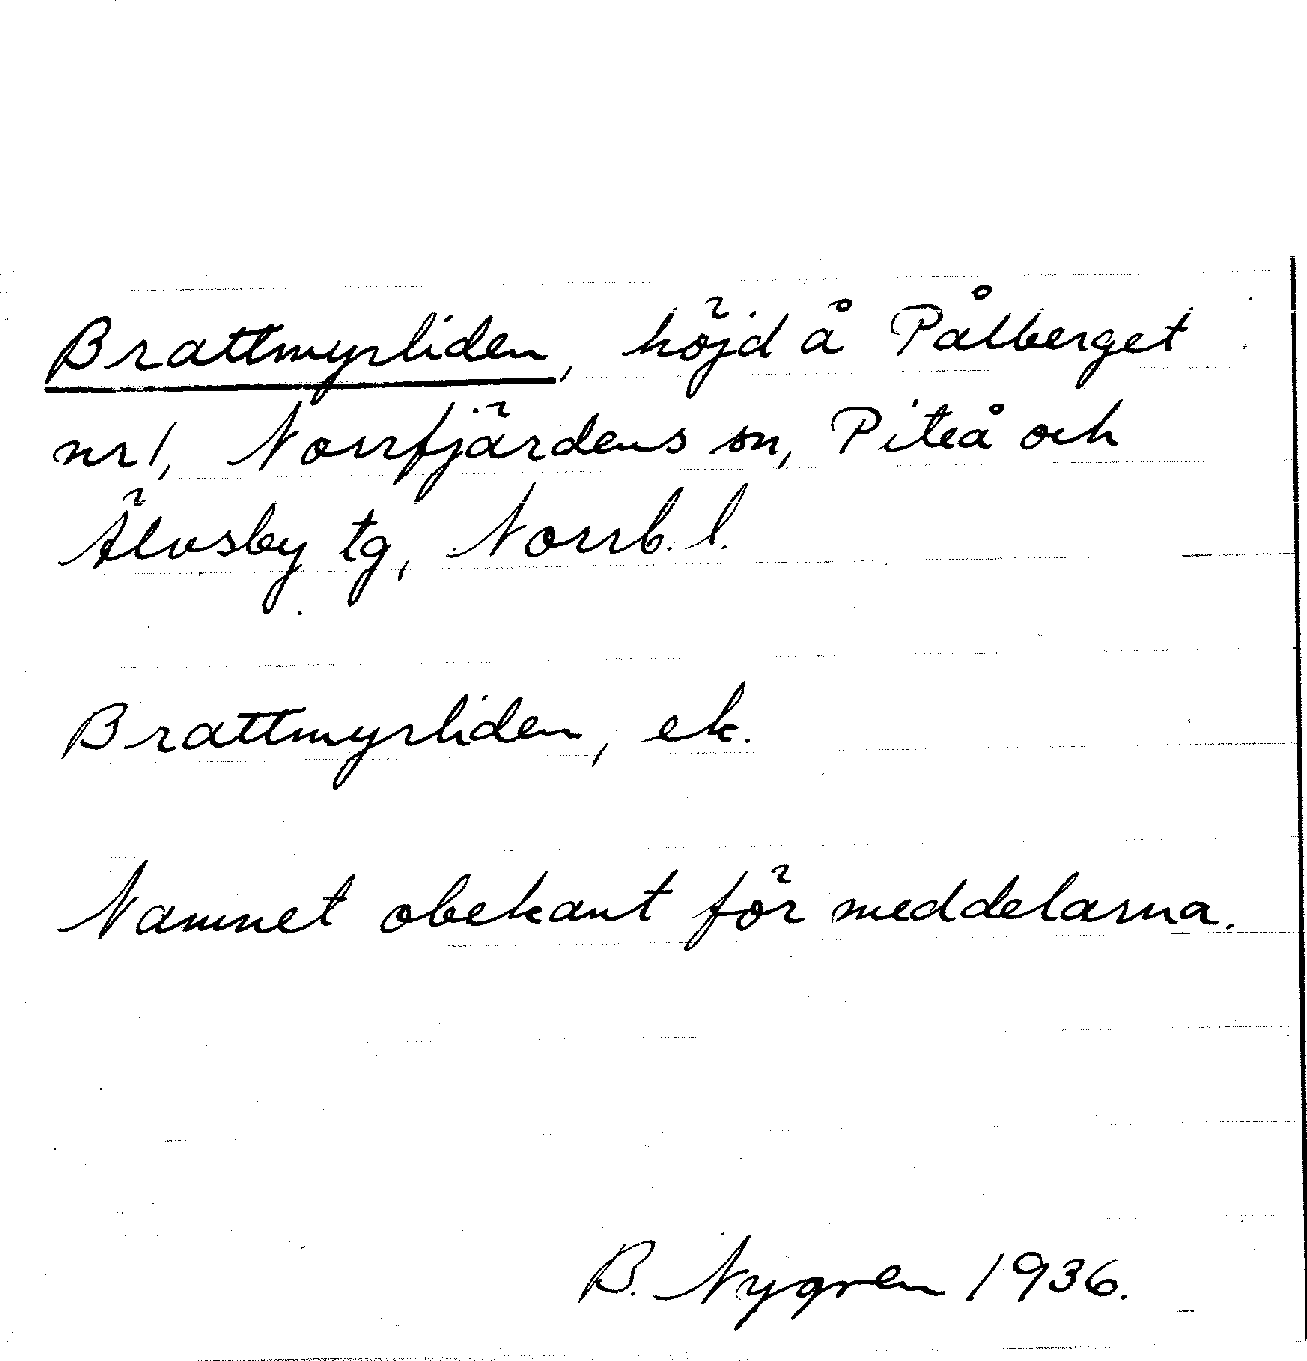 Brattmyrliden, höjd å Pålberget
nr 1, Norrfjärdens sn, Piteå och
Älvsby tg, Norrb. l.
Brattmyrliden, ek.
Namnet obekant för meddelarna.
B. Nygren 1936.